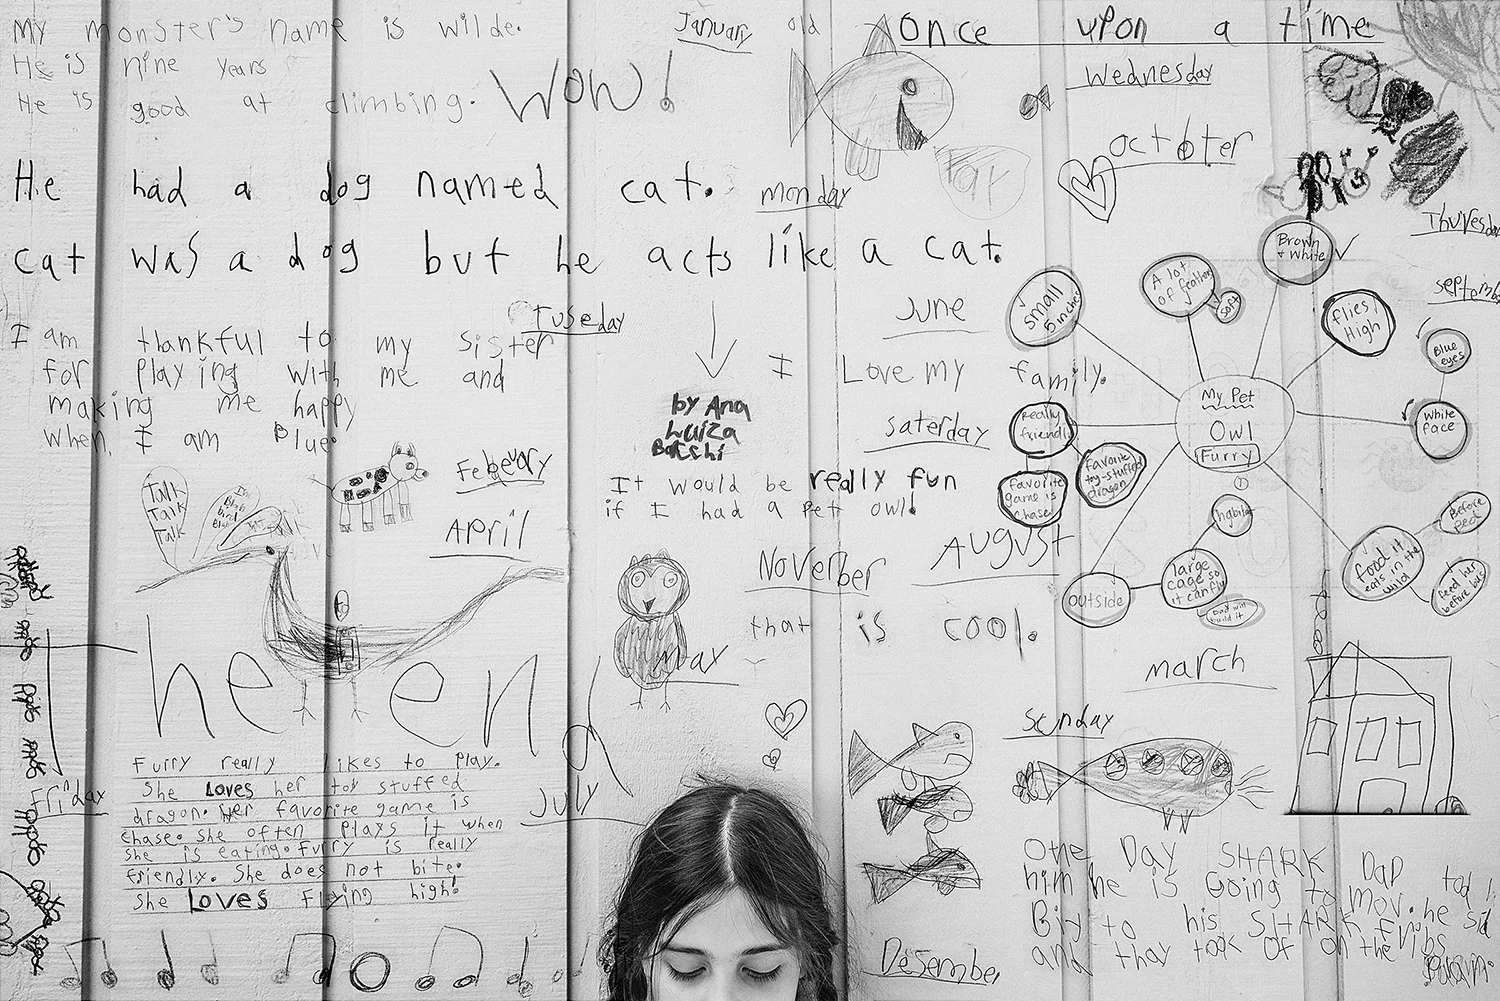 My monster's name is wilde.
He is nine years old
He is good at climbing.
WOW!
January
once upon a time
Wednesday
octoter
He had a dog named cat.
monday
cat was a dog but he acts like a cat.
Thuresday
septembe
Tuseday
June
I am thankful to my sister
for playing with me and
making me happy
when I am Blue.
I Love my family.
by Ana
Luiza
saterday
Febeuary
It would be really fun
if I had a pet owl!
April
Talk
Talk
Talk
Noverber
August
that is cool.
May
march
helena
Sunday
July
Friday
Furry really likes to play.
She Loves her toy stuffed
dragon. Her favorite game is
chase. She often plays it when
she is eating. Furry is really
friendly. She does not bite.
She LOVES Flying high!
Desember
My Pet
Owl
Furry
small
5 inches
A lot
of feathers
soft
Brown
+ White
flies
High
Blue
eyes
White
face
Really
friendly
favorite
toy-stuffed
dragon
favorite
game is
chase
habitat
large
cage so
it can fly
Dad will
build it
outside
food. it
eats in the
wild
Feed her
before bus
One Day SHARK DaD told
him he is Going to mov. he sid
Biy to his SHARK Fribs
and thay took of on the